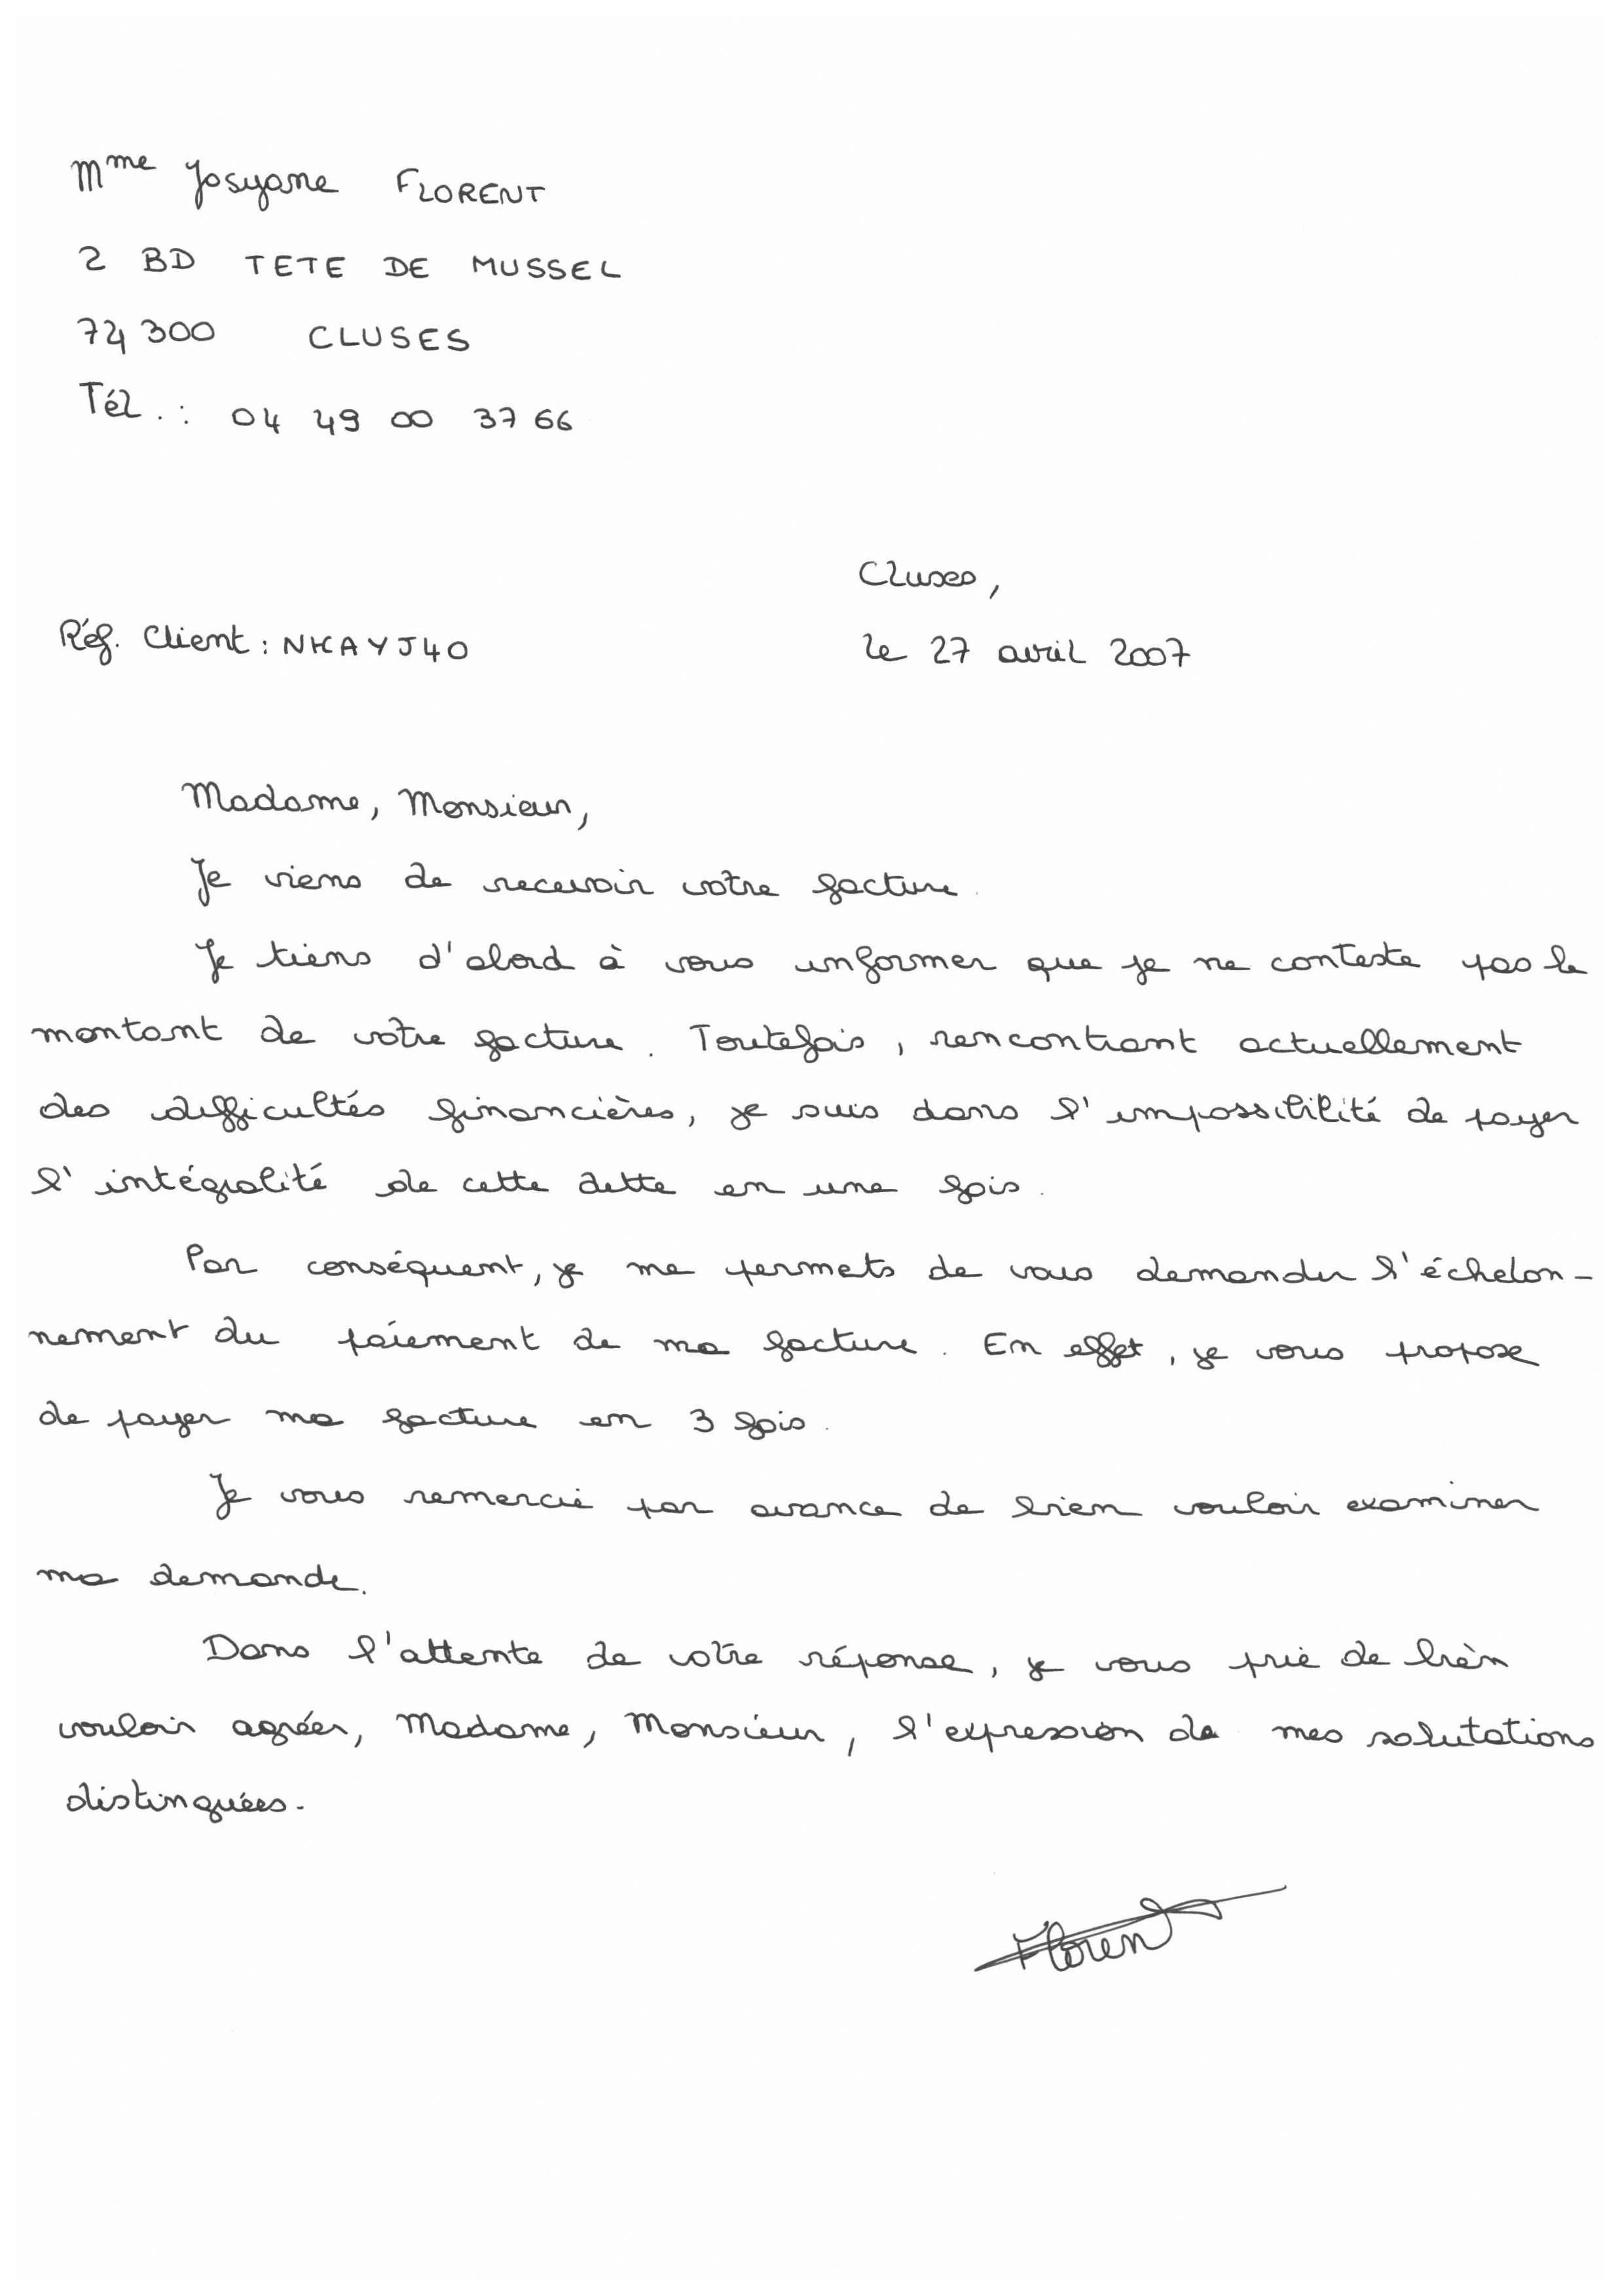 Mme Josyane FLORENT
2 BD TETE DE MUSSEL
74300 CLUSES
Tél. : 04 49 00 37 66
Cluses,
Réf. Client : NKAYJ40
le 27 avril 2007
Madame, Monsieur,
Je viens de recevoir votre facture.
Je tiens d'abord à vous informer que je ne conteste pas le
montant de votre facture. Toutefois, rencontrant actuellement
des difficultés financières, je suis dans l'impossibilité de payer
l'intégralité de cette dette en une fois.
Par conséquent, je me permets de vous demander l'échelon-
nement du paiement de ma facture. En effet, je vous propose
de payer ma facture en 3 fois.
Je vous remercie par avance de bien vouloir examiner
ma demande.
Dans l'attente de votre réponse, je vous prie de bien
vouloir agréer, Madame, Monsieur, l'expression de mes salutations
distinguées.
Florent